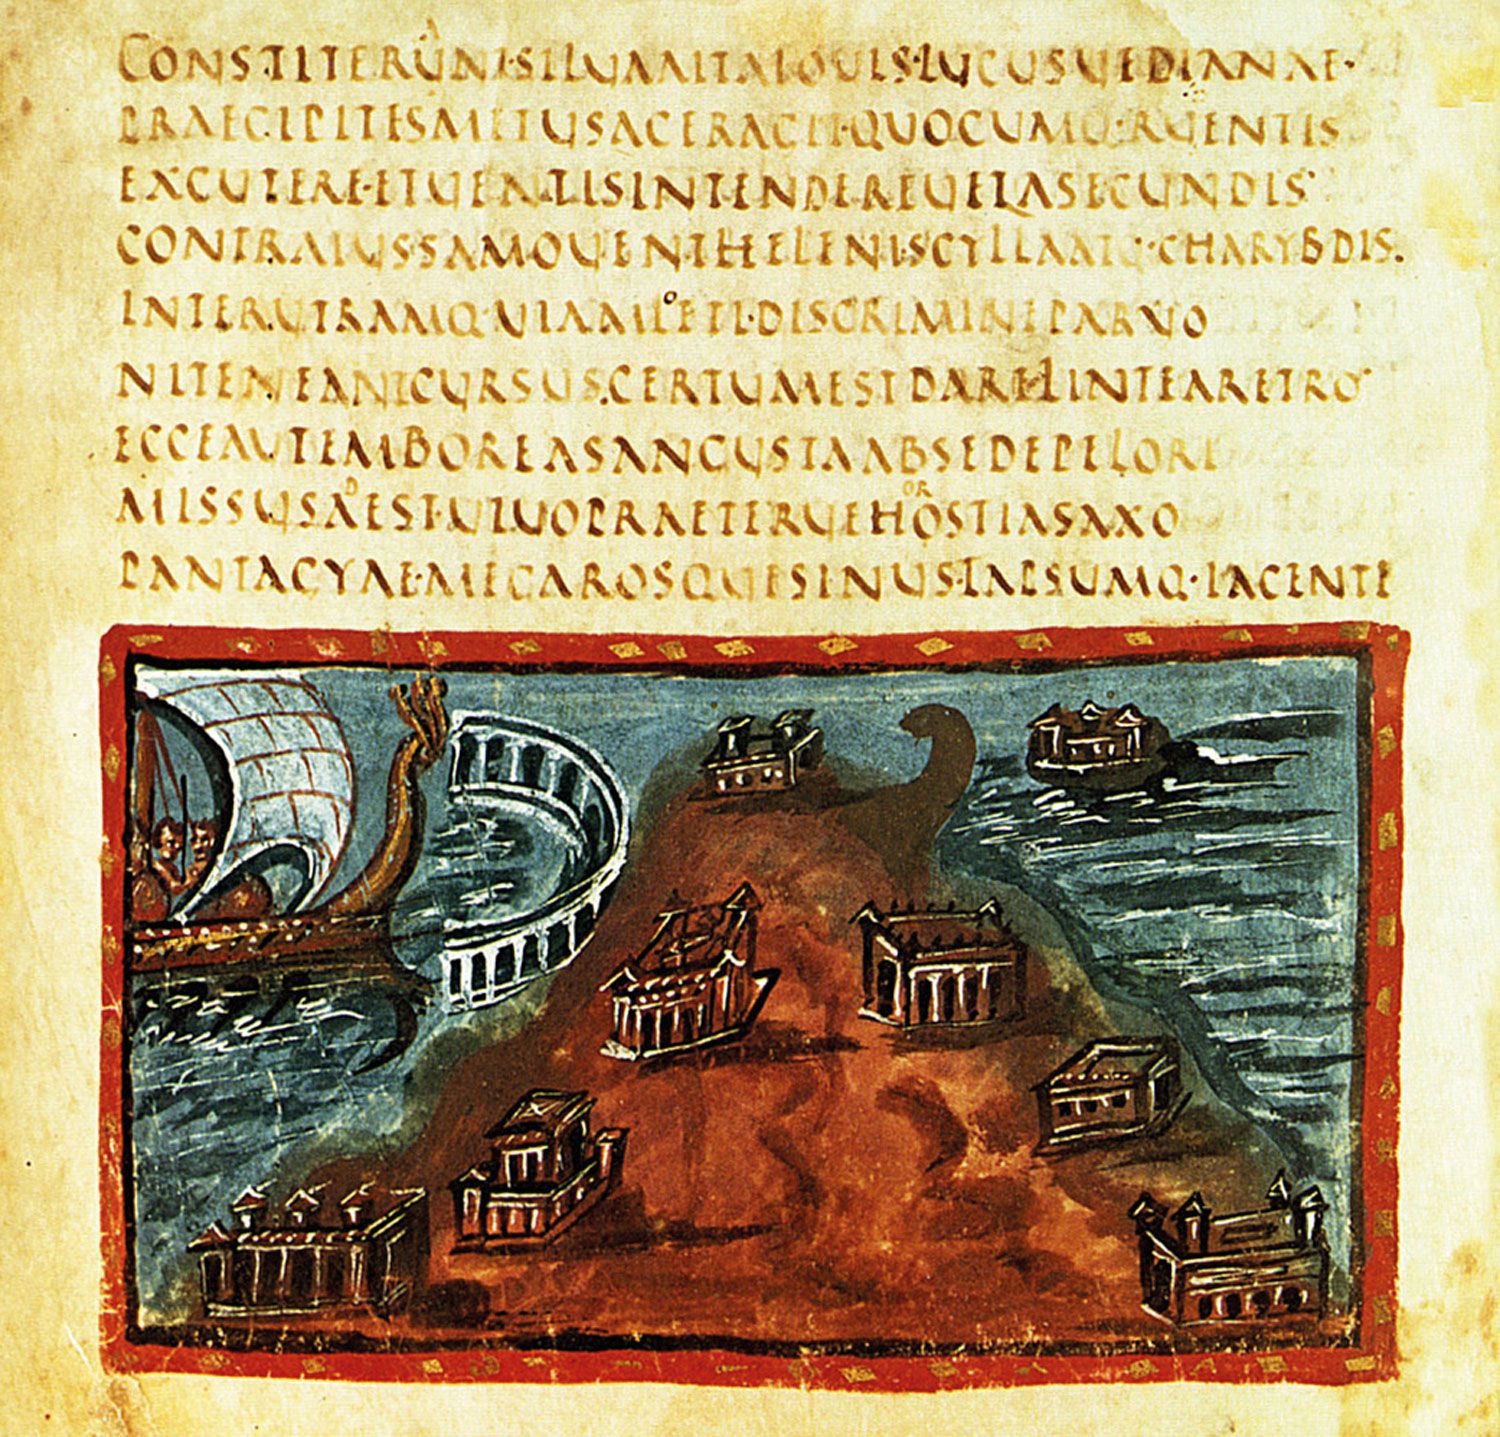 CONSTITERUNT·SILUAALTAIOUIS·LUCUSUEDIANAE·
PRAECIPITESMETUSACERAGIT·QUOCUMQ·RUENTIS
EXCUTERE·ETUENTISINTENDEREUELASECUNDIS
CONTRAIUSSAMOUENTHELENISCYLLAATQ·CHARYBDIS.
INTERUTRAMQ·UIAMLoETI·DISCRIMINEPARVO
NITENEANTCURSUS.CERTUMESTDARELINTEARETRO
ECCEAUTEMBOREASANGUSTAABSEDEPELORI
MISSUSADEST·UIUOPRAETERUEHOROSTIASAXO
PANTAGYAE·MEGAROSQUESINUS·TAPSUMQ·IACENTE